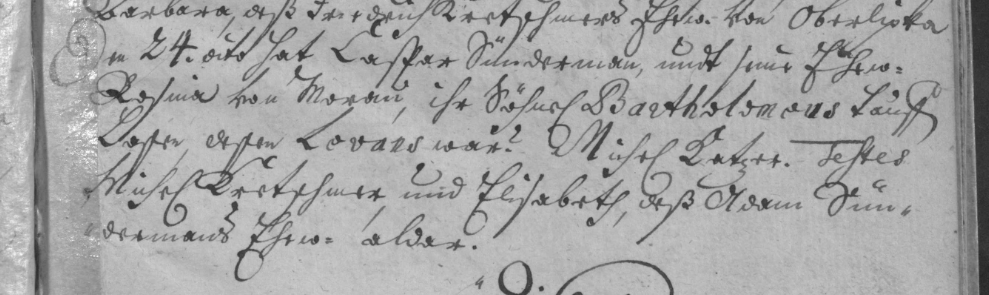 Barbara, deß Friedrich Kretschmers Ehew. von Oberlipka
den 24. dito hat Caspar Sünderman, undt seine Ehew:
Rosina von Morau, ihr Söhnel Bartholomaus tauffen
lassen, dessen Levans war: Michel Katzer. Testes
Michel Kretschmer, und Elisabeth, deß Adam Sün„
„dermans Ehew: aldar.